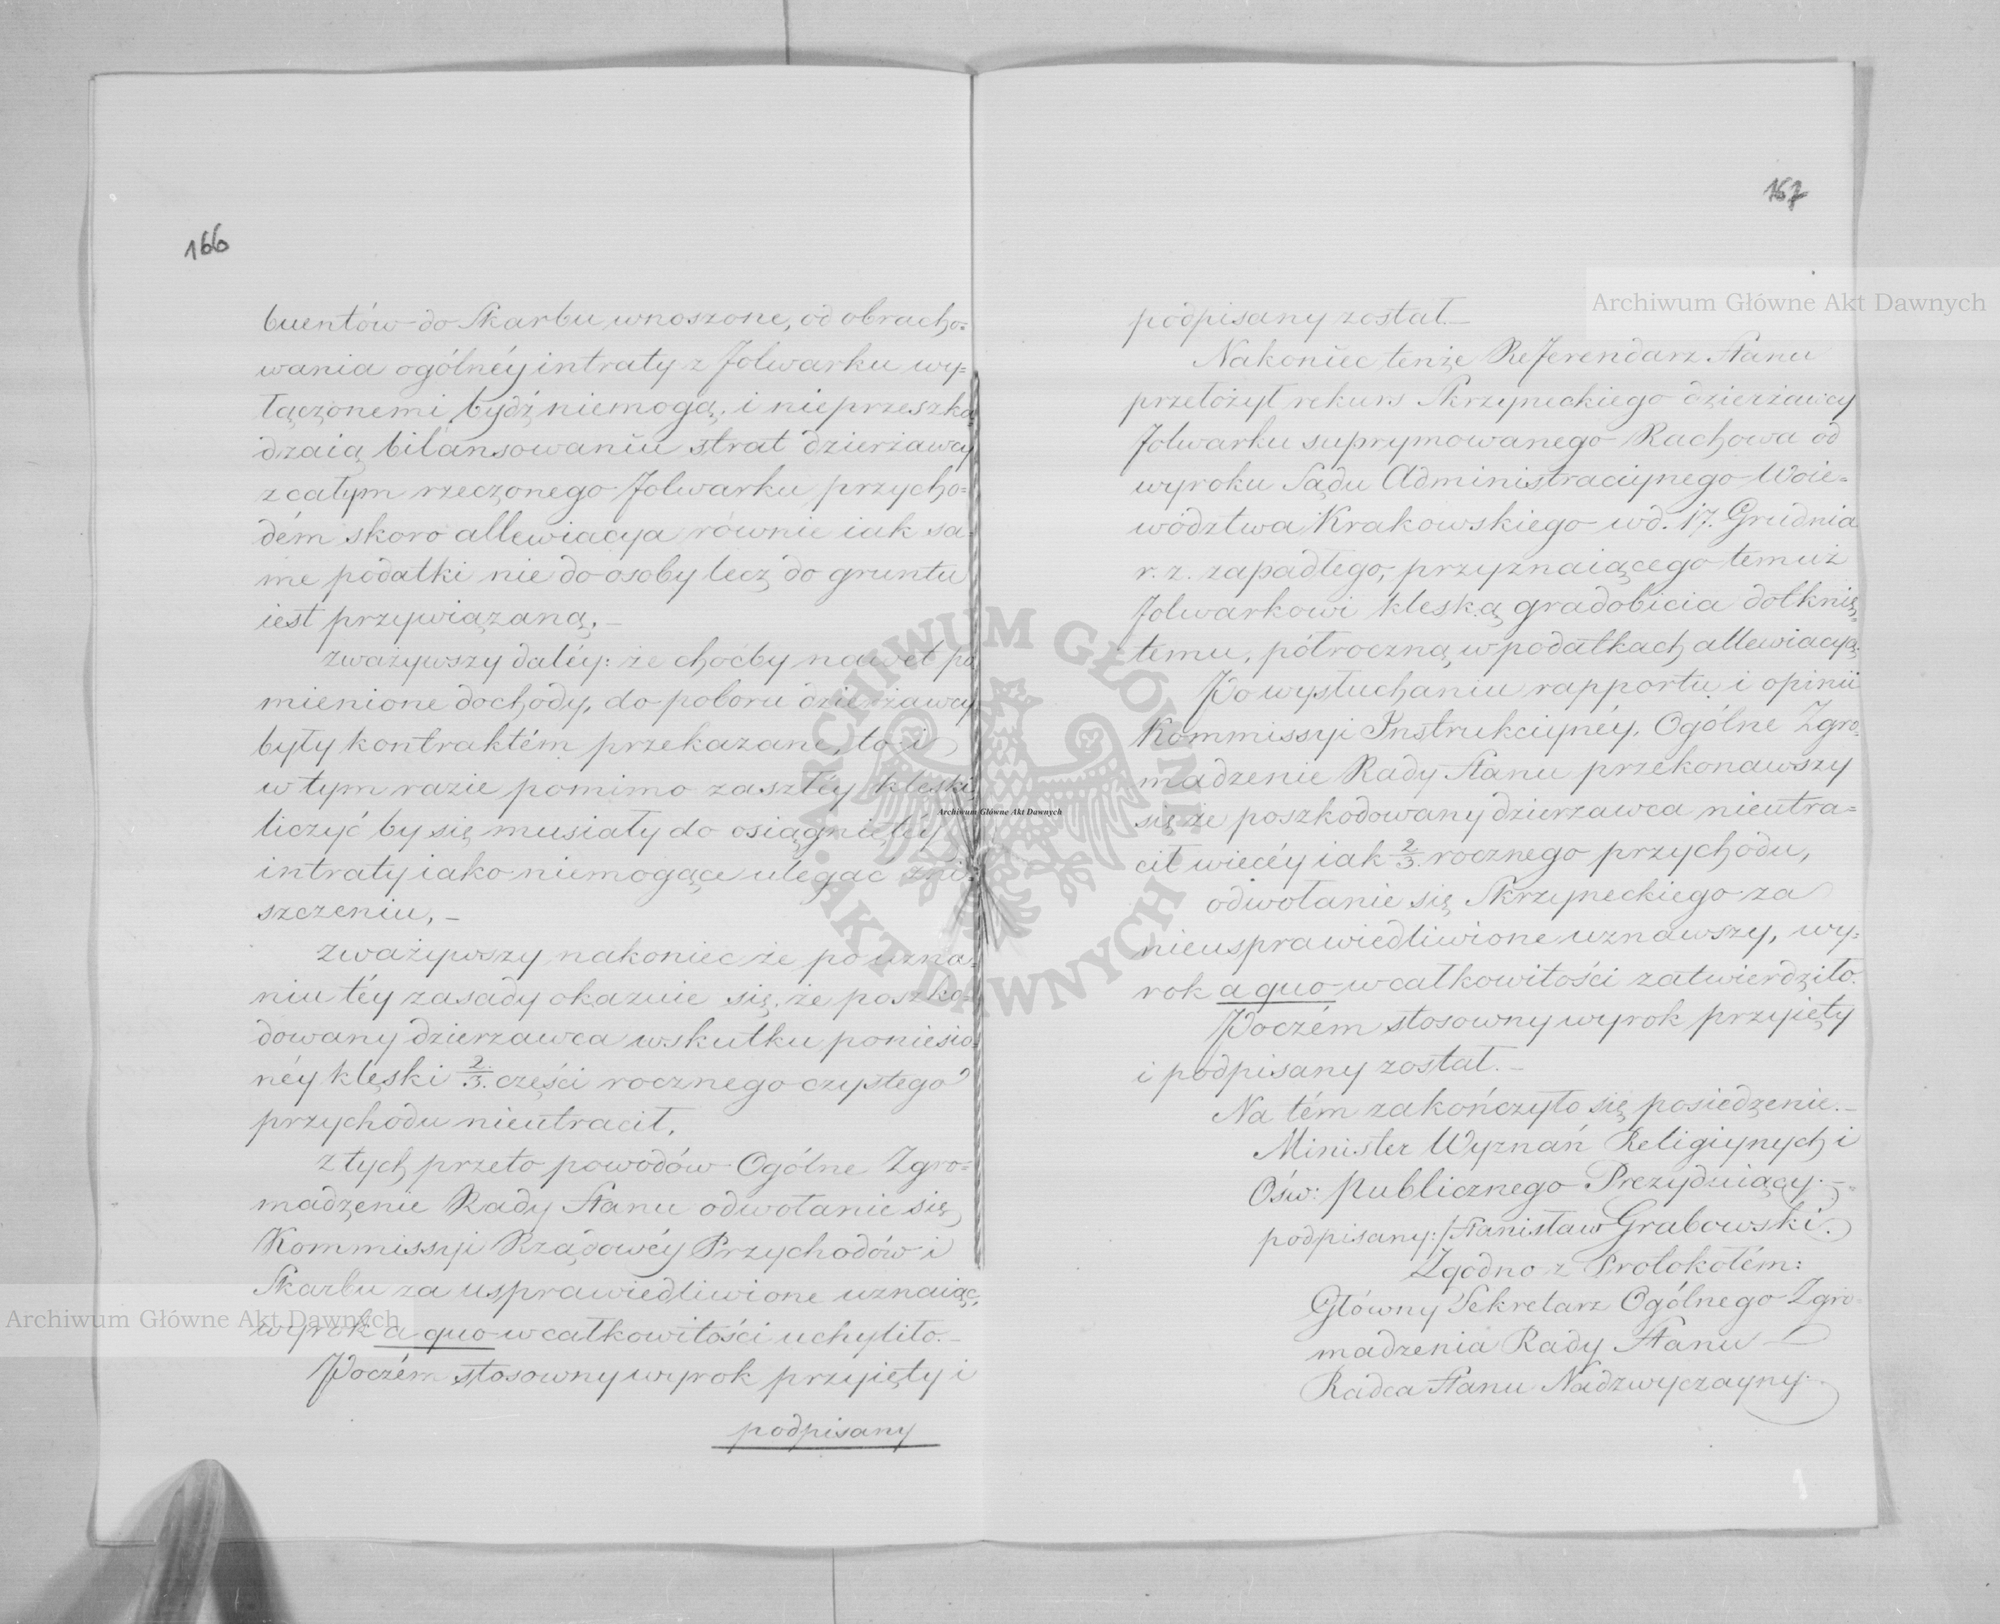 166
buentów do Skarbu wnoszone, od obracho=
wania ogólnéy intraty z folwarku wy=
łączonemi bydź niemogą, i nieprzeszka=
dzaią bilansowaniu strat dzierżawcy
z całym rzeczonego folwarku przycho=
dém skoro allewiacya równie iak sa=
me podatki nie do osoby lecz do gruntu
iest przywiązaną. –
zważywszy daléy: że choćby nawet po=
mienione dochody, do poboru dzierżawcy
były kontraktém przekazane, to i
w tym razie pomimo zaszłéy klęski
liczyć by się musiały do osiągniętéy
intraty iako niemogące ulegać zni=
szczeniu. –
zważywszy nakoniec że po uzna=
niu téy zasady okazuie się, że poszko=
dowany dzierzawca wskutku poniesio=
néy klęski 2/3. części rocznego czystego
przychodu nieutracił.
z tych przeto powodów Ogólne Zgro=
madzenie Rady Stanu odwołanie się
Kommissyi Rządowéy Przychodów i
Skarbu za usprawiedliwione uznaiąc,
wyrok a quo w całkowitości uchyliło. –
Poczém stosowny wyrok przyięty i
podpisany
167
podpisany został. –
Nakoniec tenże Referendarz Stanu
przełożył rekurs Skrzyneckiego dzierżawcy
folwarku suprymowanego Rachowa od
wyroku Sądu Administracyinego Woie=
wództwa Krakowskiego w d. 17. Grudnia
r. z. zapadłego, przyznaiącego temuż
folwarkowi klęską gradobicia dotknię=
temu, półroczną w podatkach allewiacyą.
Po wysłuchaniu rapportu i opinii
Kommissyi Instrukcyinéy, Ogólne Zgro=
madzenie Rady Stanu przekonawszy
się że poszkodowany dzierzawca nieutra=
cił więcéy iak 2/3. rocznego przychodu,
odwołanie się Skrzyneckiego za
nieusprawiedliwione uznawszy, wy=
rok a quo w całkowitości zatwierdziło.
Poczém stosowny wyrok przyięty
i podpisany został. –
Na tém zakończyło się posiedzenie. –
Minister Wyznań Religiynych i
Ośw: Publicznego Prezyduiący. –
podpisany:/ Stanisław Grabowski.
Zgodno z Protokołém:
Główny Sekretarz Ogólnego Zgro=
madzenia Rady Stanu
Radca Stanu Nadzwyczayny.
Archiwum Główne Akt Dawnych
Archiwum Główne Akt Dawnych
Archiwum Główne Akt Dawnych
ARCHIWUM GŁÓWNE AKT DAWNYCH